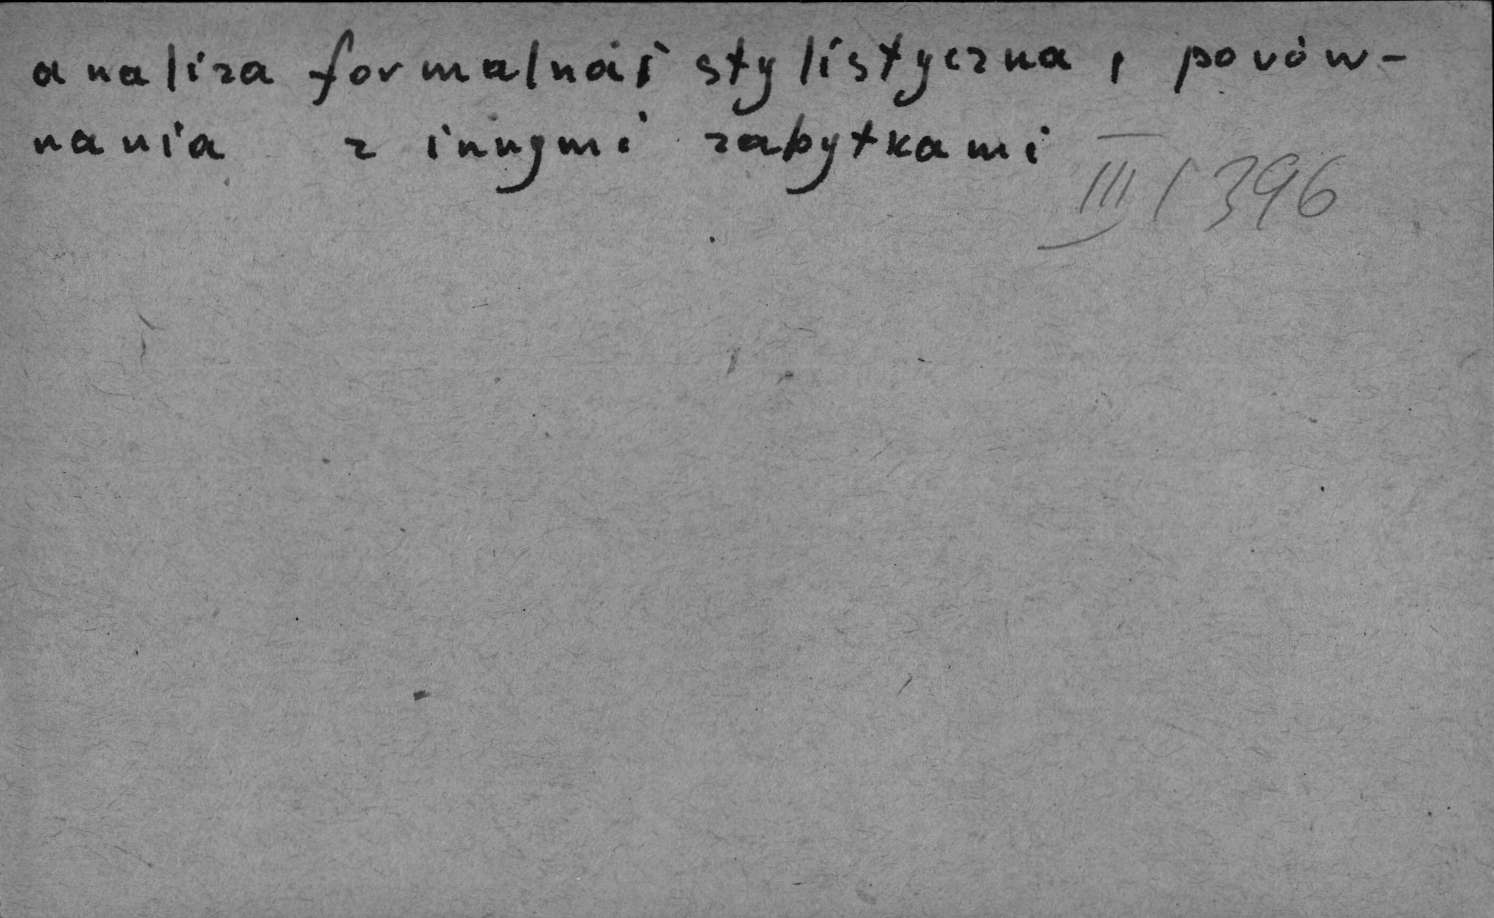 analiza formalna i stylistyczna, porów-
nania z innymi zabytkami
III/396